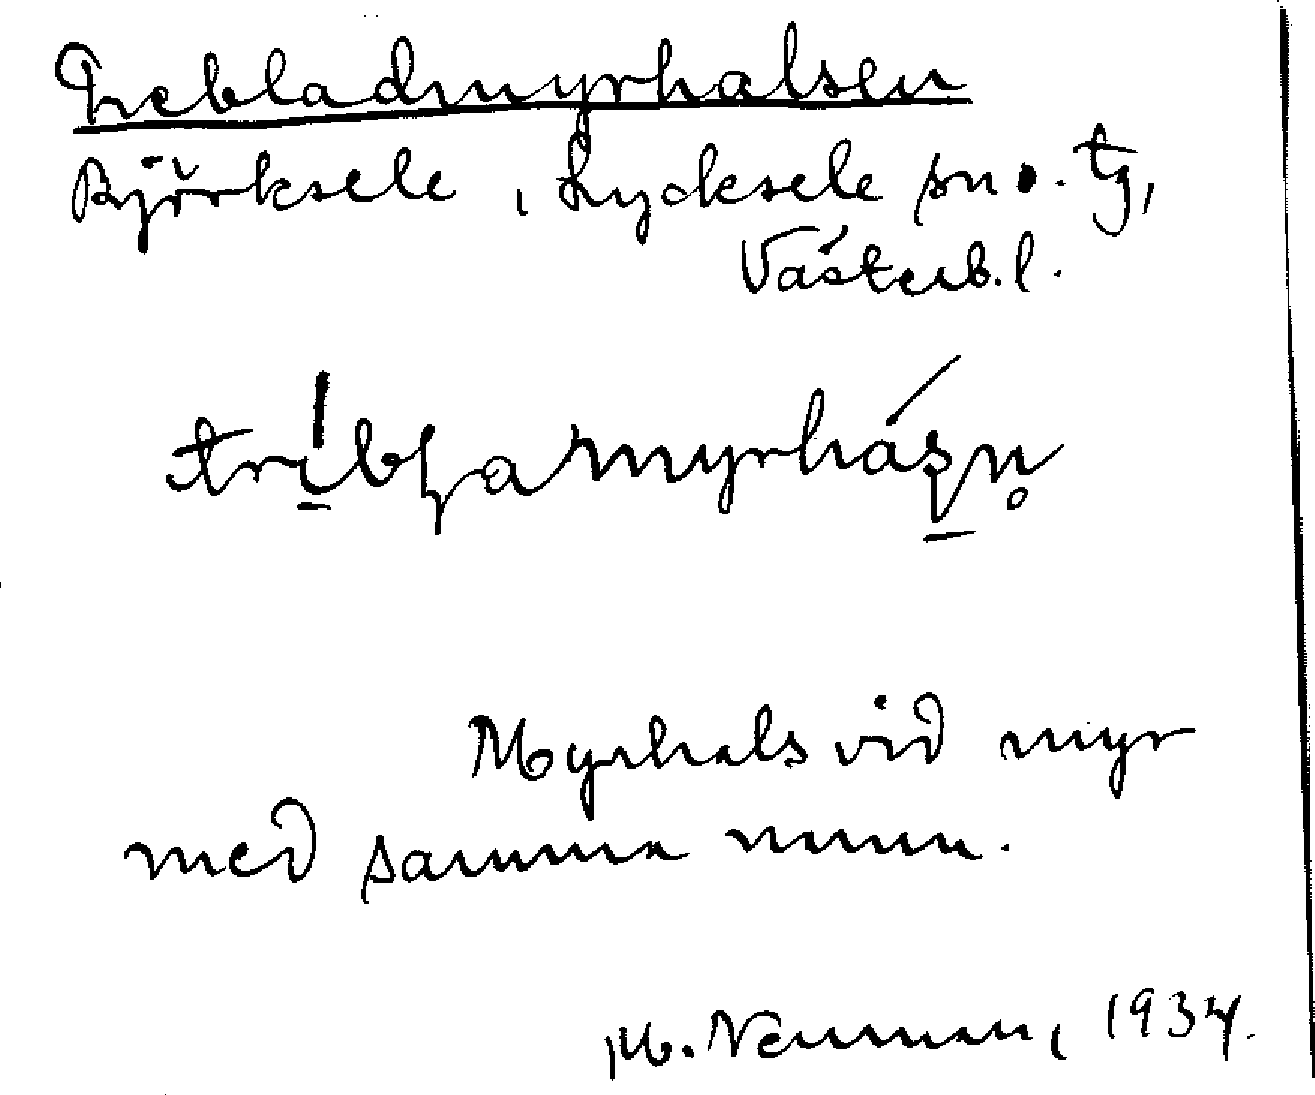 Trebladmyrhalsen
Björksele, Lycksele sn o. tg,
Västerb. l.
Myrhals vid myr
med samma namn.
M. Neuman, 1934.